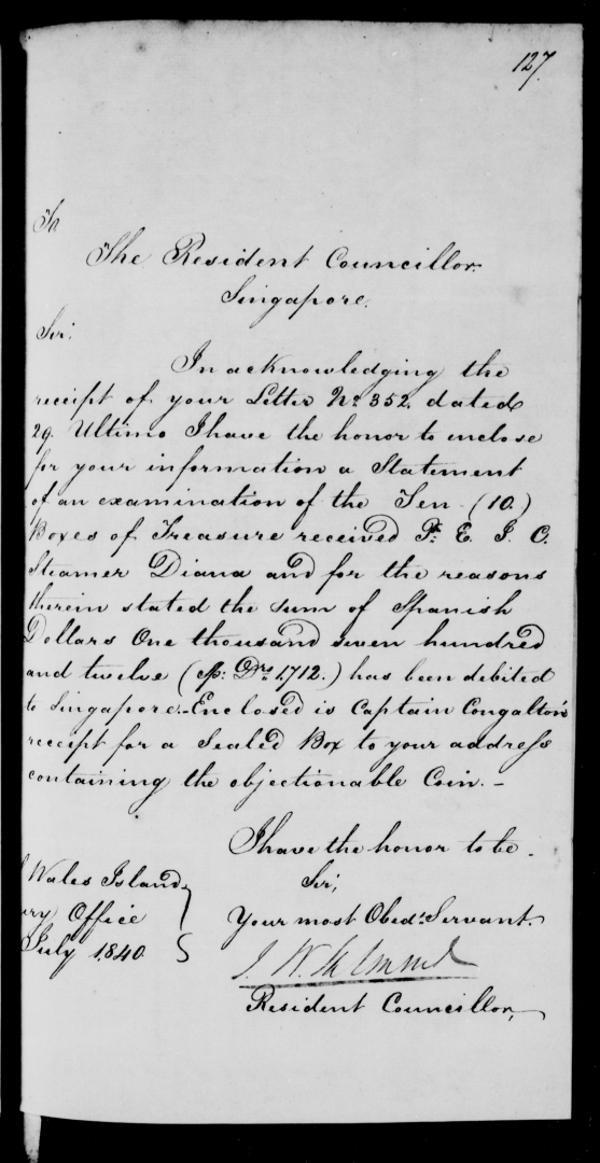 127
To
The Resident Councillor
Singapore.
Sir:
In acknowledging the
receipt of your Letter No. 352, dated
29. Ultimo I have the honor to enclose
for your information a Statement
of an examination of the Ten (10.)
Boxes of Treasure received Pr. E. I. C.
Steamer Diana and for the reasons
therein stated the sum of Spanish
Dollars One thousand seven hundred
and twelve (Sp: Drs 1712.) has been debited
to Singapore.-Enclosed is Captain Congalton's
receipt for a Sealed Box to your address
containing the objectionable Coin.-
I have the honor to be.
Sir,
Your most Obedt. Servant.
Wales Island
ry Office
July 1840
J. W. Salmond
Resident Councillor,